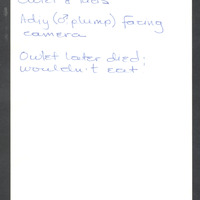 Owlet & 
Adry (♂ plump) facing
camera
Owlet later died;
wouldn't eat